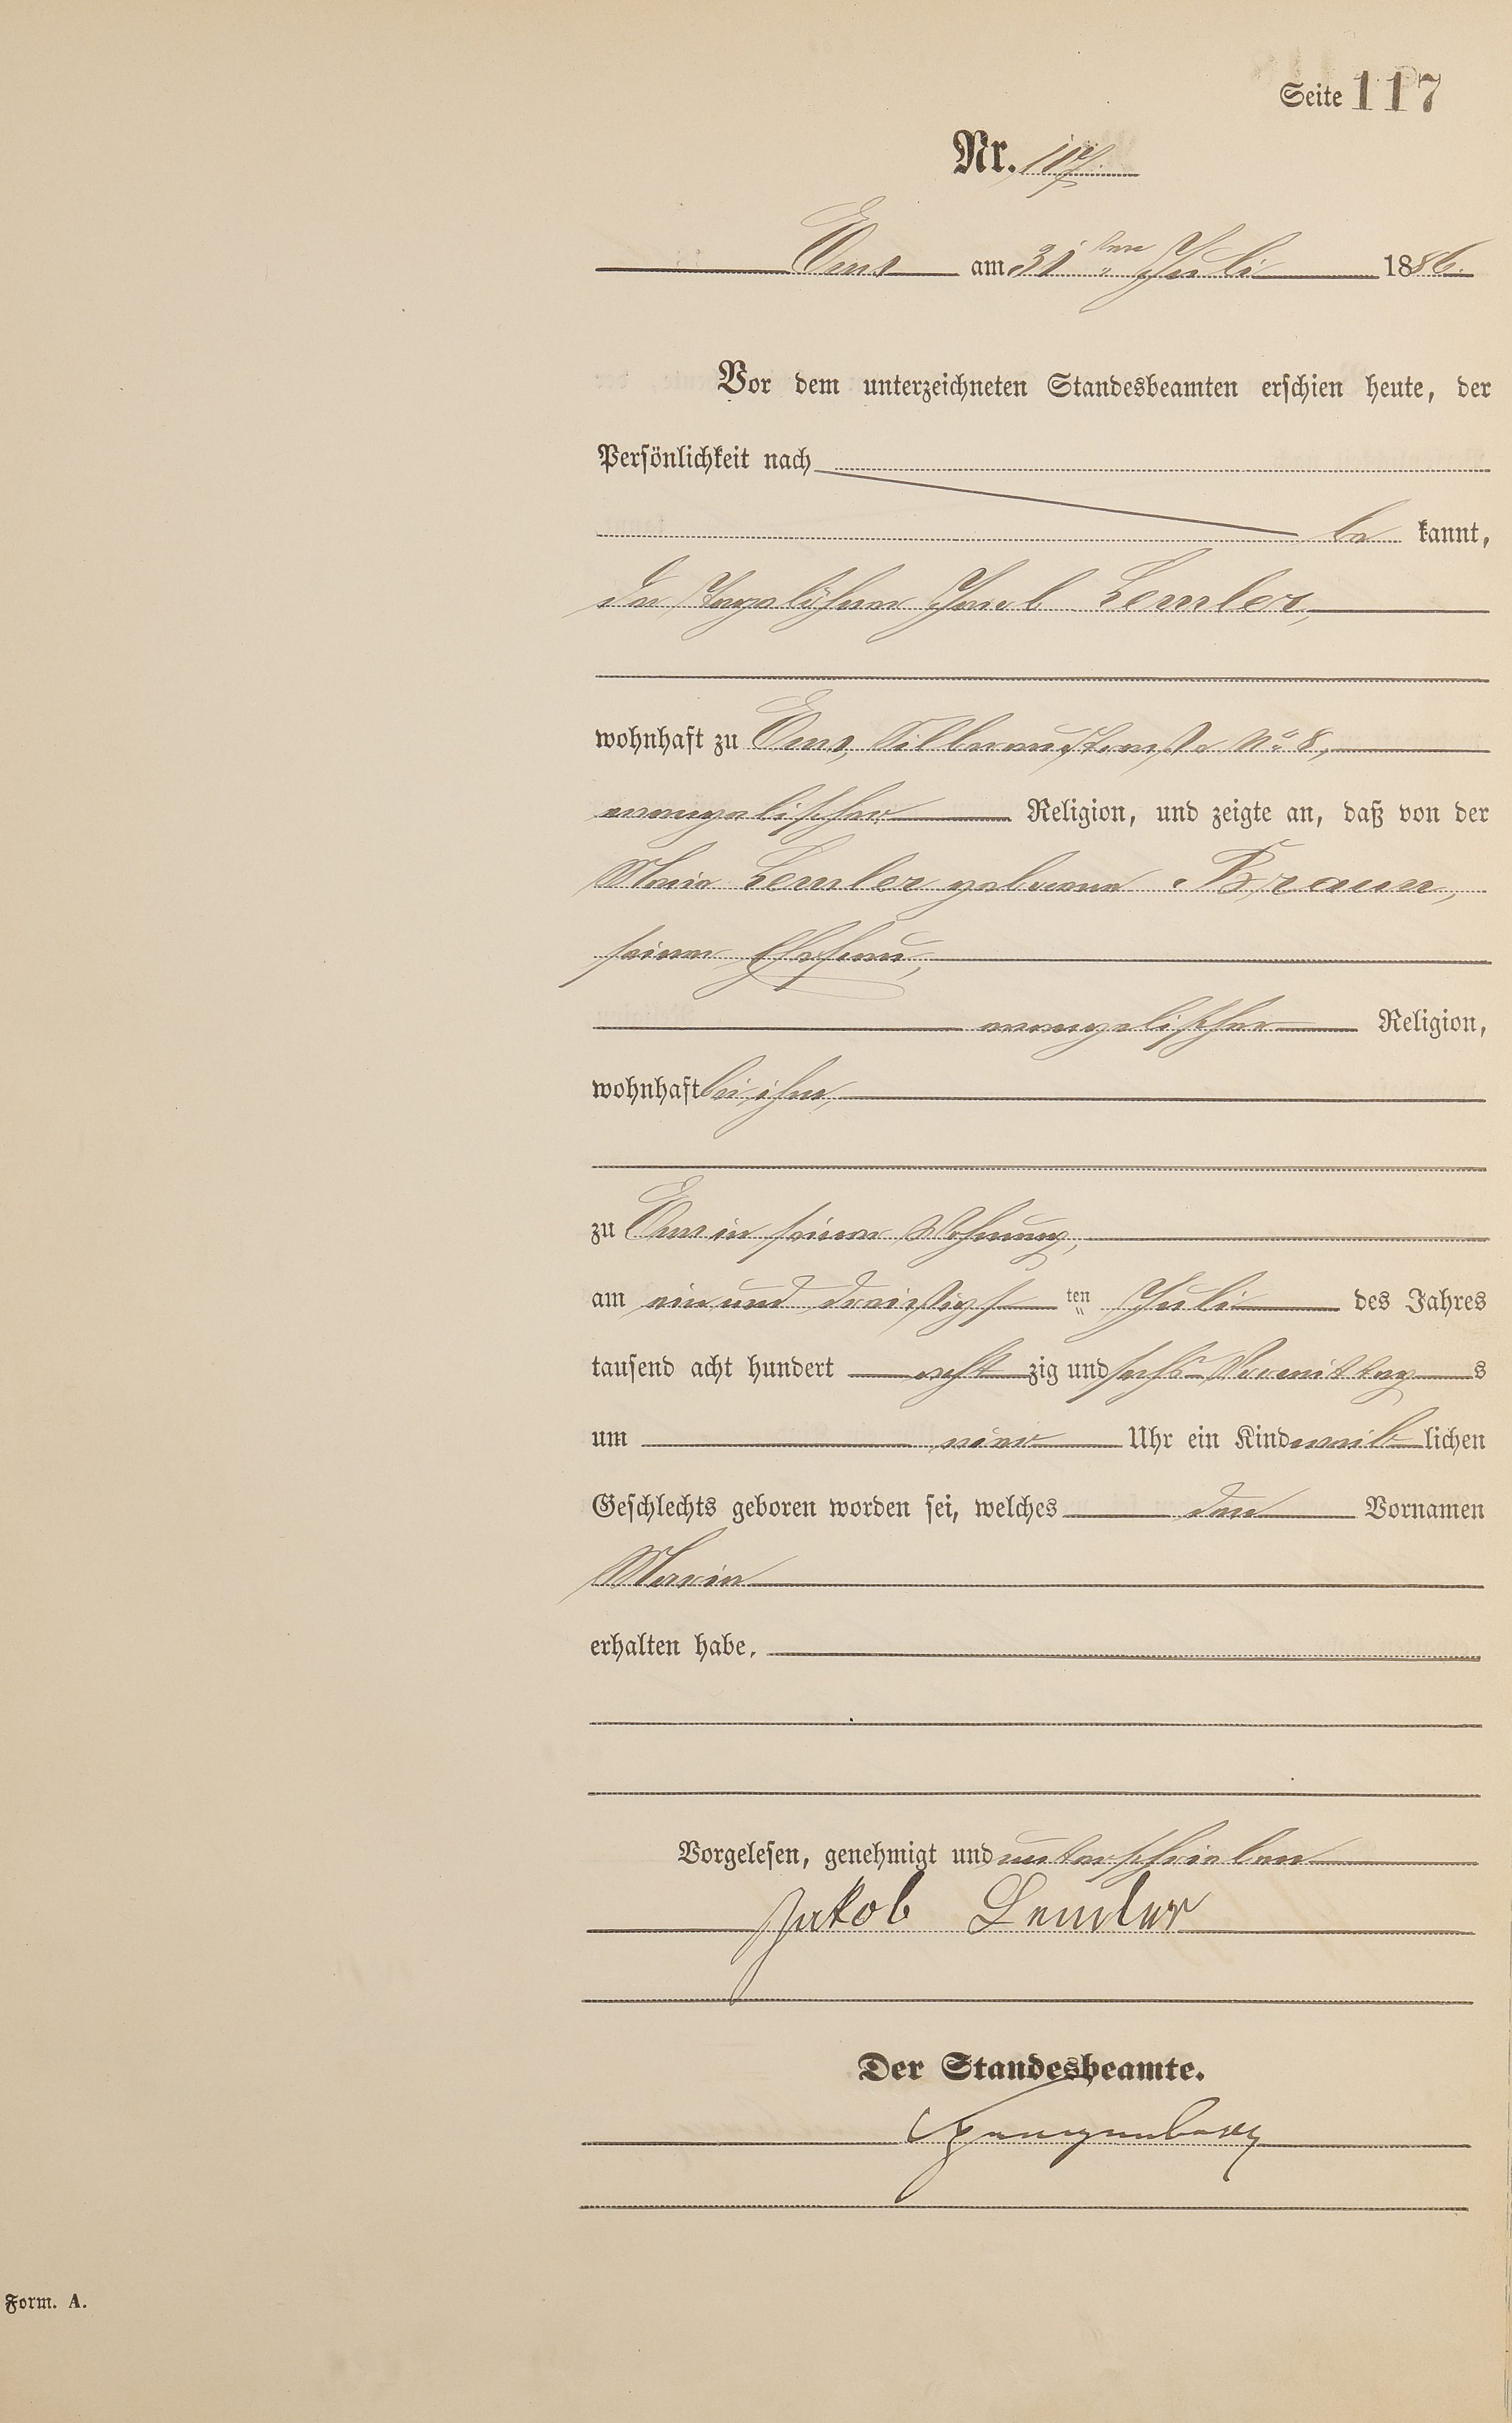 Seite 117
Nr. 117.
Ems am 31ten Juli 1886.
Vor dem unterzeichneten Standesbeamten erschien heute, der
Persönlichkeit nach
be kannt,
der Tagelöhner Jacob Lemler,
wohnhaft zu Ems, Silberaustraße No 8,
evangelischer Religion, und zeigte an, daß von der
Maria Lemler geborene Braun,
seiner Ehefrau,
evangelischer Religion,
wohnhaft bei ihm,
zu Ems in seiner Wohnung,
am ein und dreißigsten Juli des Jahres
tausend acht hundert acht zig und sechs Vormittags
um vier Uhr ein Kind weiblichen
Geschlechts geboren worden sei, welches den Vornamen
Maria
erhalten habe.
Vorgelesen, genehmigt und unterschrieben
Jakob Lemler
Der Standesbeamte.
Form. A.